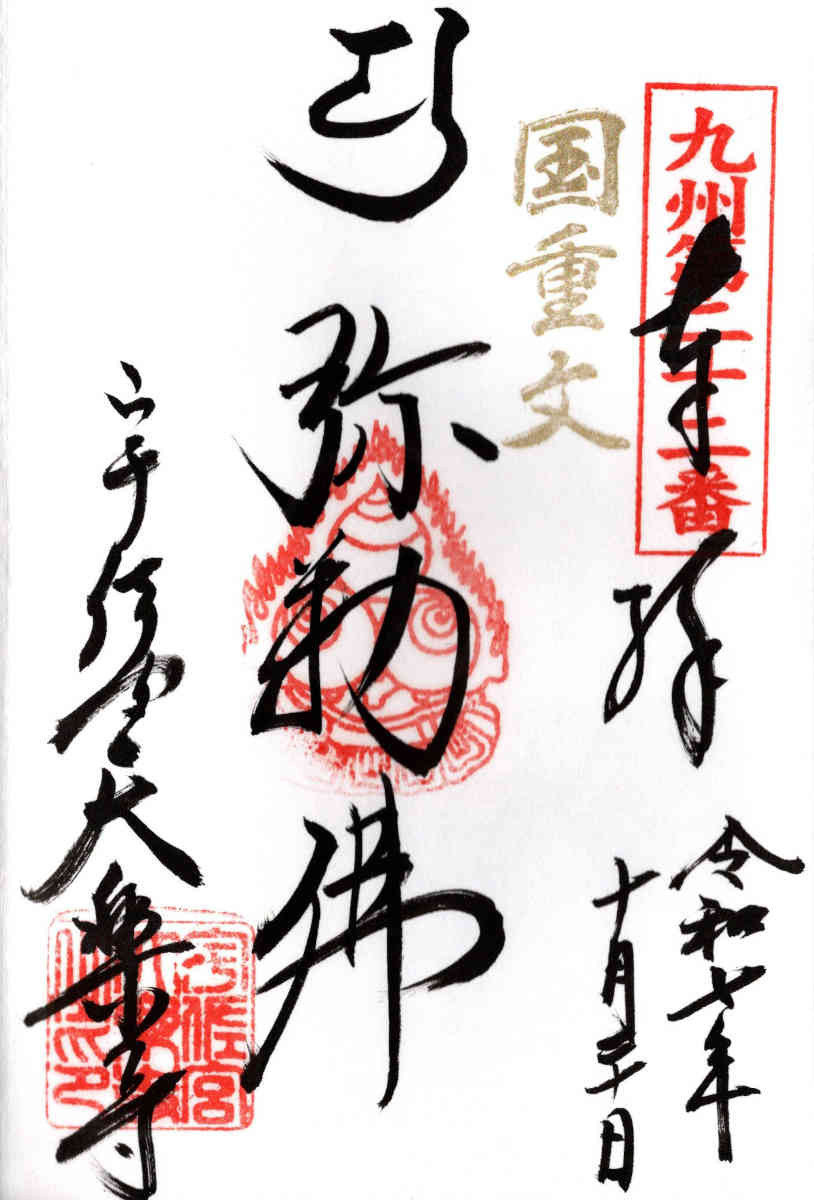 九州第二十二番
奉拝
令和七年
十月三十日
国重文
弥勒佛
宇佐宮大樂寺